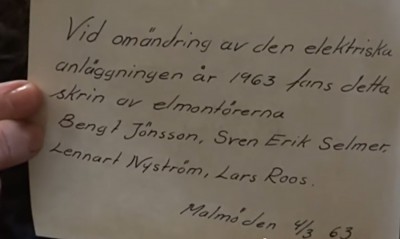 Vid omändring av den elektriska
anläggningen år 1963 fans detta
skrin av elmontörerna
Bengt Jönsson, Sven Erik Selmer,
Lennart Nyström, Lars Roos.
Malmöden 4/3 63